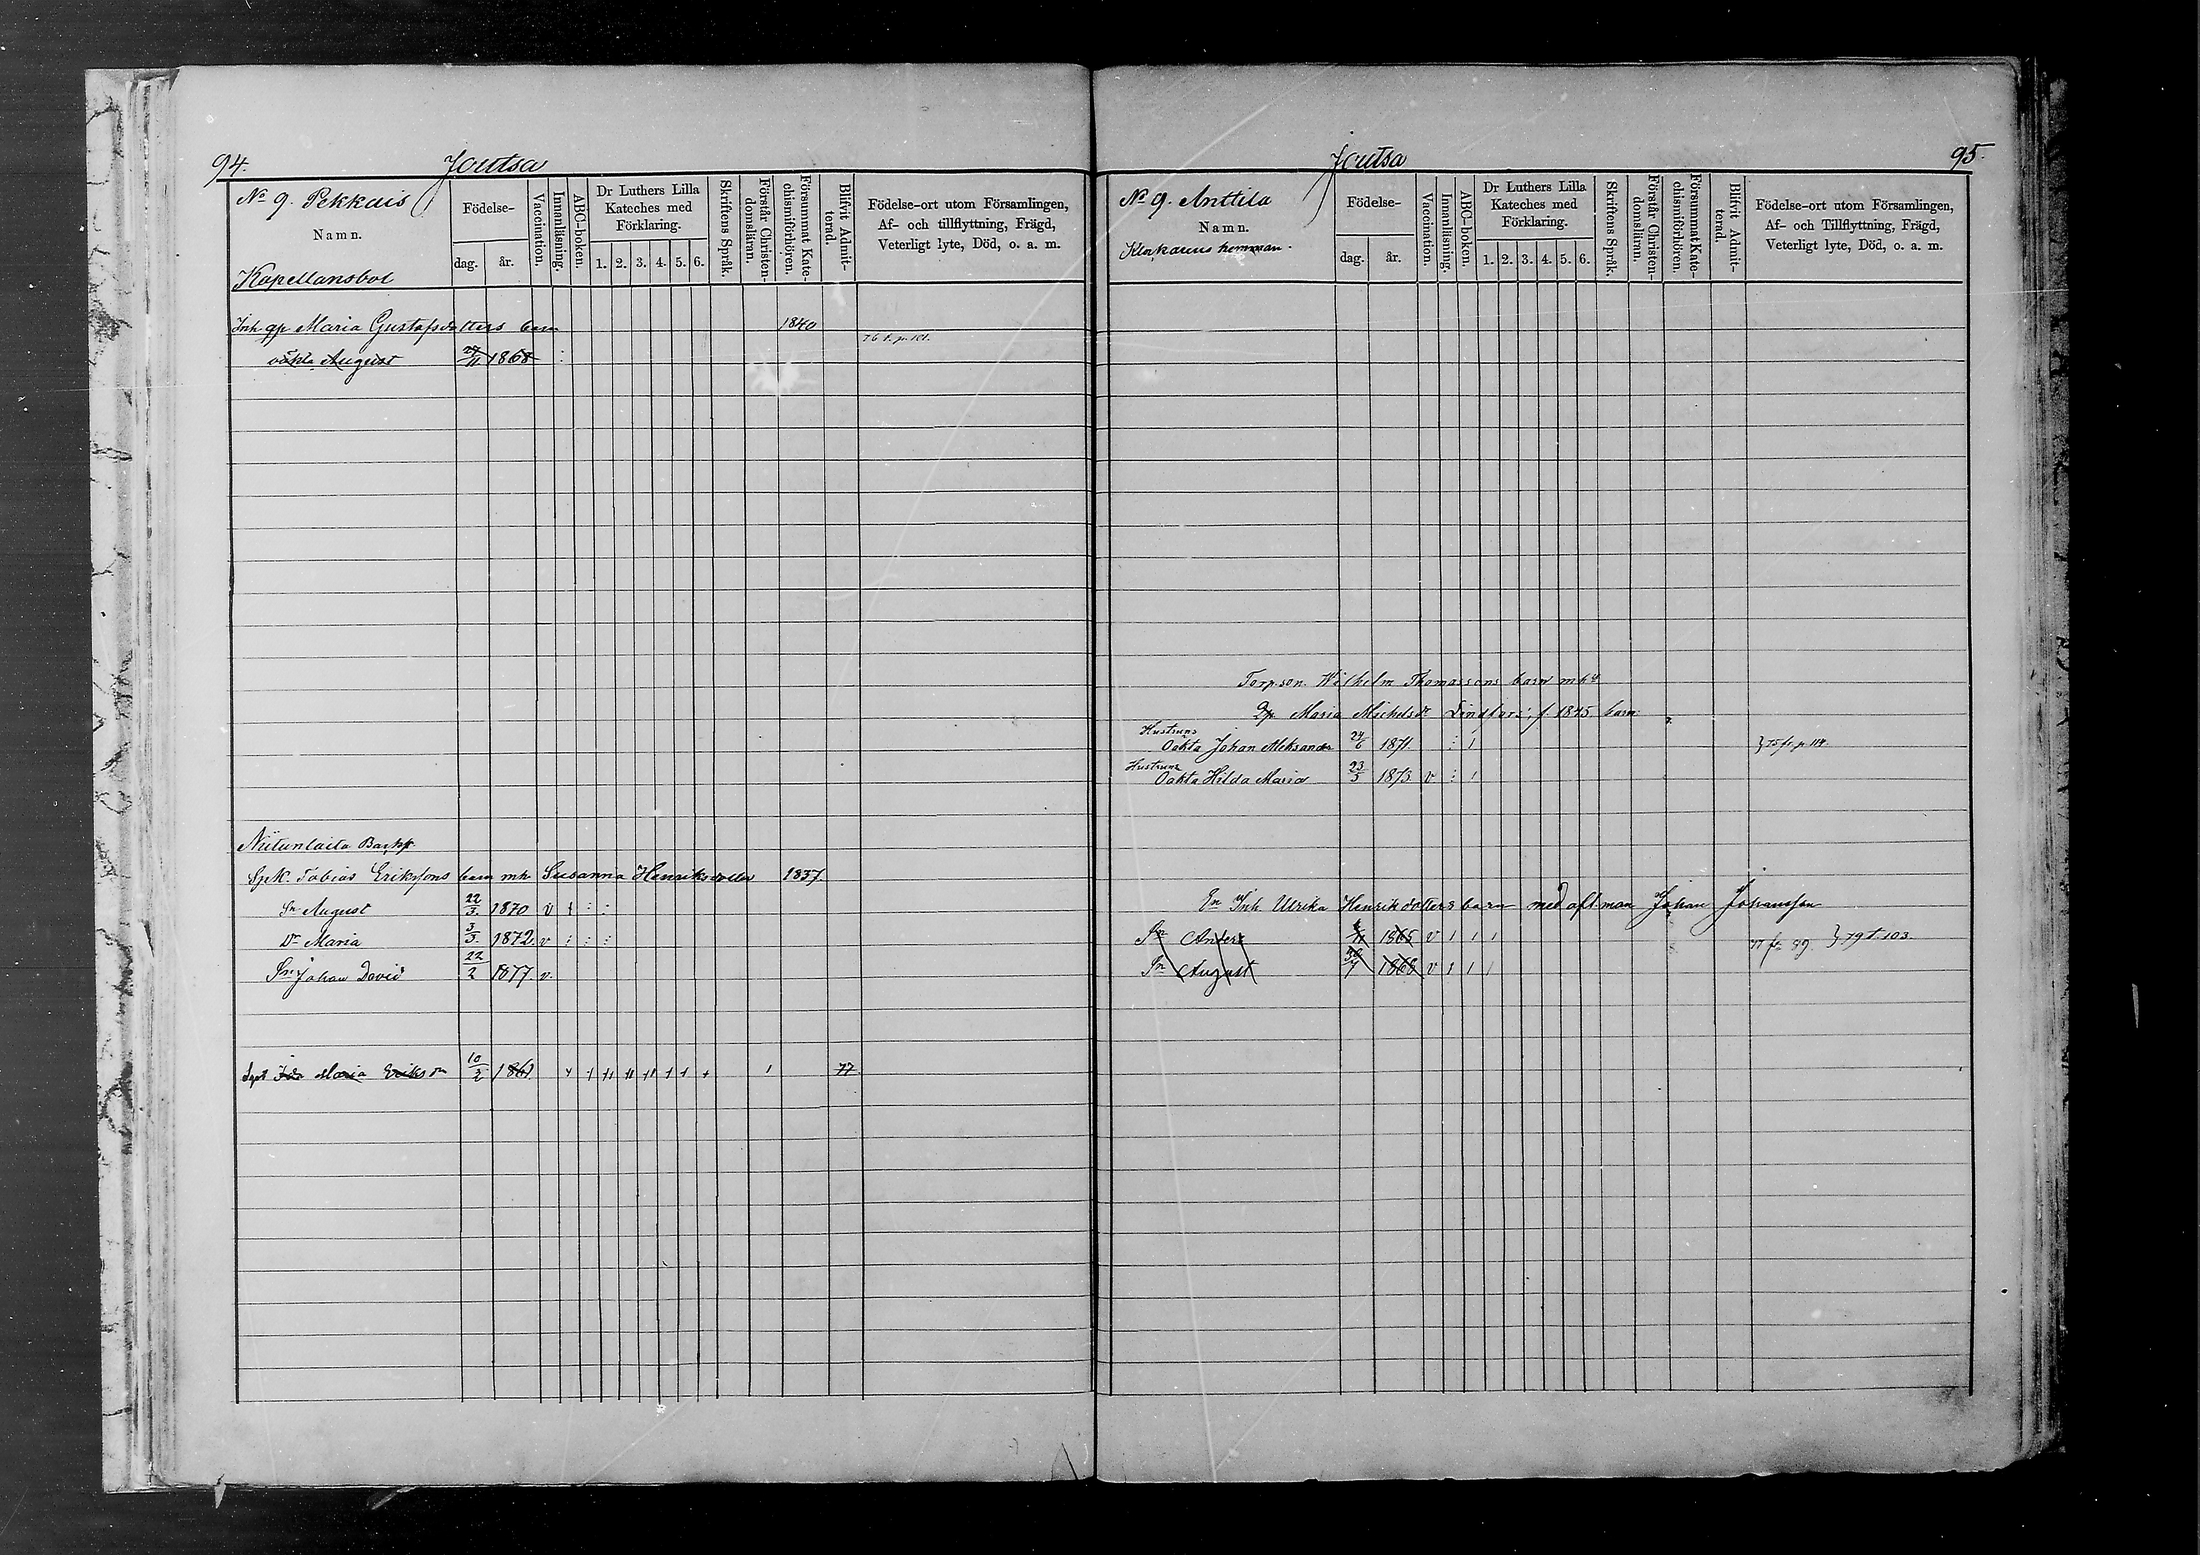 94. Joutsa
No 9. Pekkais
Namn.
Kapellansbol
Födelse-
dag. år.
Vaccination.
Innanläsning.
ABC-boken.
Dr Luthers Lilla Kateches med Förklaring.
1. 2. 3. 4. 5. 6.
Skriftens Språk.
Förstår Christendomsläran.
Försummat Katechismiförhören.
Blifvit Admitterad.
Födelse-ort utom Församlingen,
Af- och tillflyttning, Frägd,
Veterligt lyte, Död, o. a. m.
Inh. qp Maria Gustafsdotters barn 1840
oäkta August 29/11 1868
76 t. p. 101.
Niitunlaita
Sytk. Tobias Erikssons barn mh Susanna Henriksdotter 1837.
Sn August 22/3. 1870 v
Dr Maria 3/3. 1872 v
Sn Johan David 22/2 1877 v.
Ida Maria Eriksdr 10/2 1861 77
Joutsa 95.
No 9. Anttila
Namn.
Klockarens hemman.
Födelse-
dag. år.
Vaccination.
Innanläsning.
ABC-boken.
Dr Luthers Lilla Kateches med Förklaring.
1. 2. 3. 4. 5. 6.
Skriftens Språk.
Förstår Christendomsläran.
Försummat Katechismiförhören.
Blifvit Admitterad.
Födelse-ort utom Församlingen,
Af- och Tillflyttning, Frägd,
Veterligt lyte, Död, o. a. m.
Torp.son. Wilhelm Thomassons barn m h
Qp. Maria Michelsdr Lindfors, f. 1845 barn
Hustruns
Oäkta Johan Aleksander 24/6 1871. } 75 fr. p. 114.
Hustruns
Oäkta Hilda Maria 23/3 1873 v
En Inh. Ulrika Henriksdotters barn med aft.man Johan Johansson
Sn Anders 1865 v 77 fr. 89. } 79 t. 103.
Sn August 30/7 1868 v